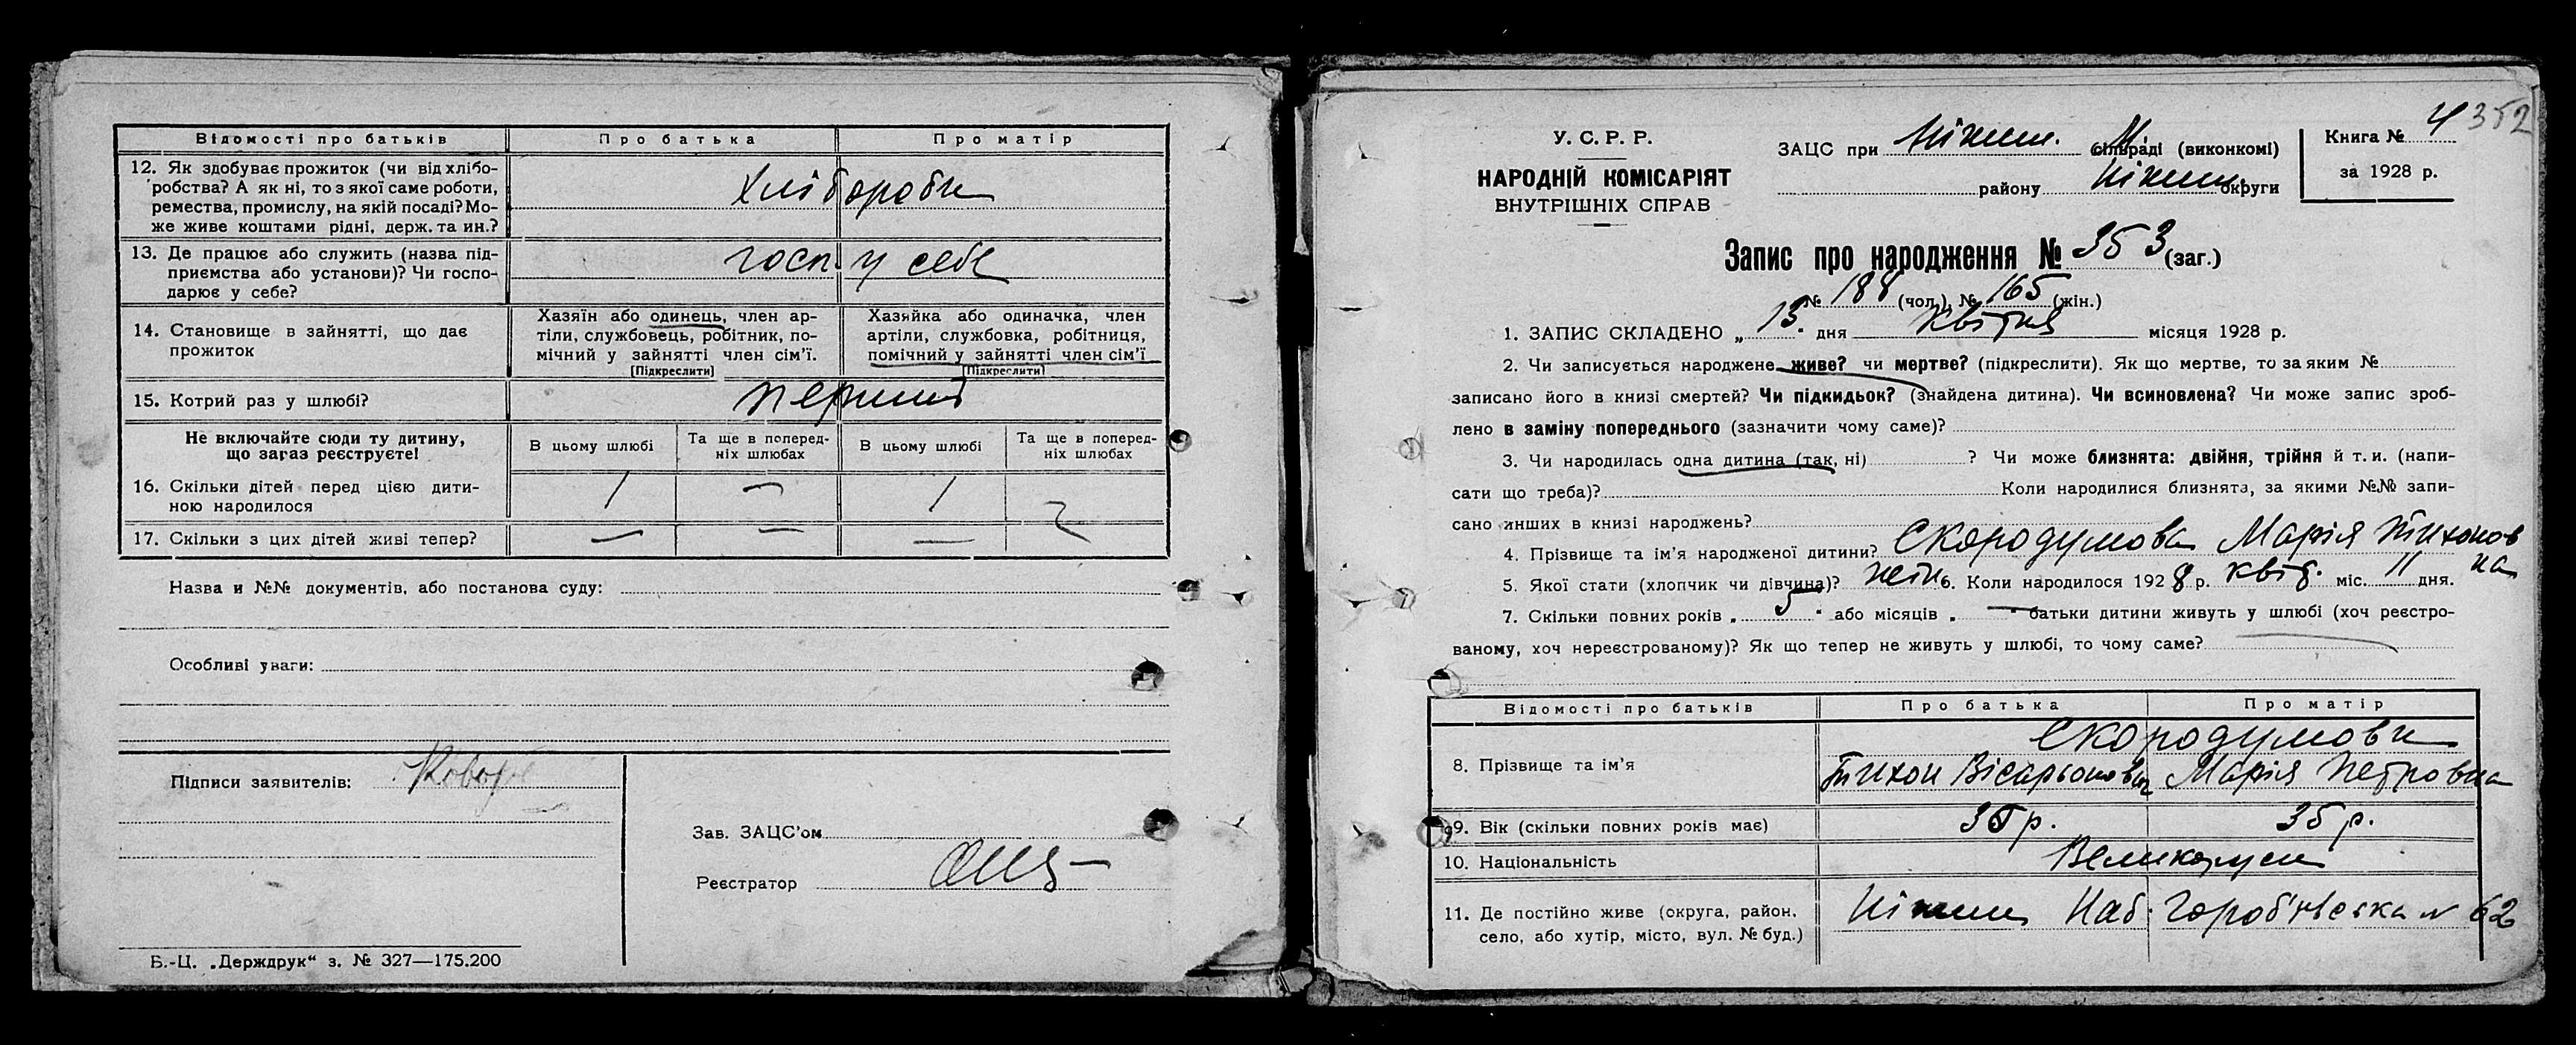 Відомості про батьків Про батька Про матір
12. Як здобуває прожиток (чи від хлібо-
робства? А як ні, то з якої саме роботи,
ремества, промислу, на якій посаді? Мо-
же живе коштами рідні, держ. та ин.?
Хлібороби
13. Де працює або служить (назва під-
приємства або установи)? Чи госпо-
дарює у себе?
госп. у себе
14. Становище в зайнятті, що дає
прожиток
Хазяїн або одинець, член ар-
тілі, службовець, робітник, по-
мічний у зайнятті член сім'ї.
[Підкреслити]
Хазяйка або одиначка, член
артіли, службовка, робітниця,
помічний у зайнятті член сім'ї
[Підкреслити]
15. Котрий раз у шлюбі?
перший
Не включайте сюди ту дитину,
що загаз реєструєте!
В цьому шлюбі
Та ще в поперед-
ніх шлюбах
В цьому шлюбі
Та ще в поперед-
ніх шлюбах
16. Скільки дітей перед цією дити-
ною народилося
1 — 1
17. Скільки з цих дітей живі тепер? — — —
Назва и №№ документів, або постанова суду:
Особливі уваги:
Підписи заявителів:
Зав. ЗАЦС'ом
Реєстратор
Б.-Ц. „Держдрук“ з. № 327—175.200
4 352
У. С. Р. Р.
НАРОДНІЙ КОМІСАРІЯТ
ВНУТРІШНІХ СПРАВ
ЗАЦС при Ніжин. М сільраді (виконкомі)
району Ніжин. округи
Книга № 4
за 1928 р.
Запис про народження № 353 (заг.)
№ 188 (чол.), № 165 (жін.)
1. ЗАПИС СКЛАДЕНО „13“ дня Квітня місяця 1928 р.
2. Чи записується народжене живе? чи мертве? (підкреслити). Як що мертве, то за яким №
записано його в книзі смертей? Чи підкидьок? (знайдена дитина). Чи всиновлена? Чи може запис зроб-
лено в заміну попереднього (зазначити чому саме)?
3. Чи народилась одна дитина (так, ні) ? Чи може близнята: двійня, трійня й т. и. (напи-
сати що треба)? Коли народилися близнята, за якими №№ запи-
сано инших в книзі народжень?
4. Прізвище та ім'я народженої дитини? Скородумова Марія Тихонов
на
5. Якої стати (хлопчик чи дівчина)? жін 6. Коли народилося 1928 р. квіт. міс. 11 дня.
7. Скільки повних років „5“ або місяців „—“ батьки дитини живуть у шлюбі (хоч реєстро-
ваному, хоч нереєстрованому)? Як що тепер не живуть у шлюбі, то чому саме?
Відомості про батьків Про батька Про матір
Скородумови
8. Прізвище та ім'я Тихон Вісарьонович Марія Петровна
9. Вік (скільки повних років має) 35 р. 35 р.
10. Національність Великоруси
11. Де постійно живе (округа, район,
село, або хутір, місто, вул. № буд.)
Ніжин Наб. № 62